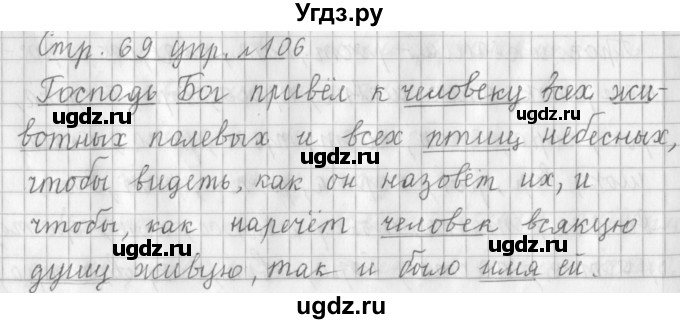 Угдз.ру
Стр. 69 упр. №106
Господь Бог привёл к человеку всех жи-
вотных полевых и всех птиц небесных,
чтобы видеть, как он назовёт их, и
чтобы, как наречёт человек всякую
душу живую, так и было имя ей.
ugdz.ru
ugdz.ru
ugdz.ru
ugdz.ru
ugdz.ru
ugdz.ru
ugdz.ru
ugdz.ru
ugdz.ru
ugdz.ru
Угдз.ру